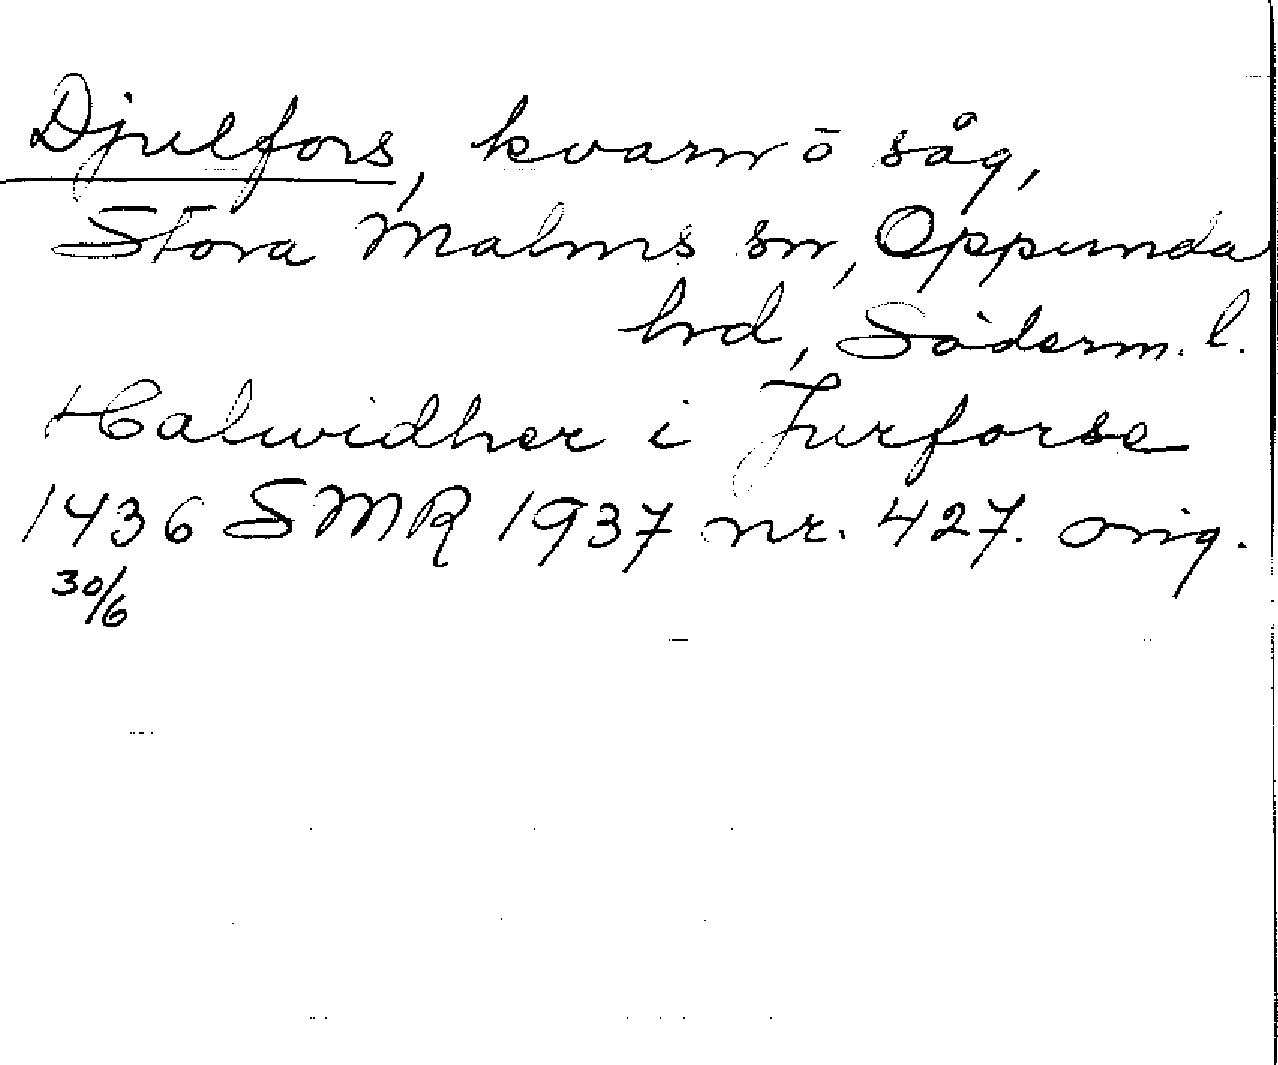 Djulfors, kvarn ō såg,
Stora Malms sn, Oppunda
hrd, Söderm. l.
Halwidher i Jurforse
1436 SMR 1937 nr. 427. orig.
30/6